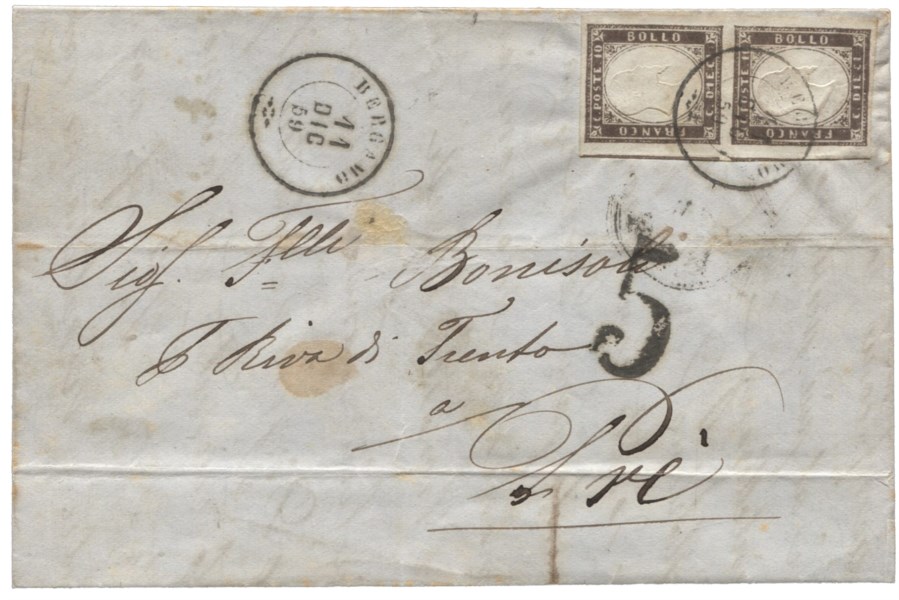 BOLLO
C. POSTE 10
C. DIECI
FRANCO
BOLLO
C. POSTE 10
C. DIECI
FRANCO
BERGAMO
11
DIC
59
Sigr. Flli Bonisoli
5
P Riva di Trento
a
Prè